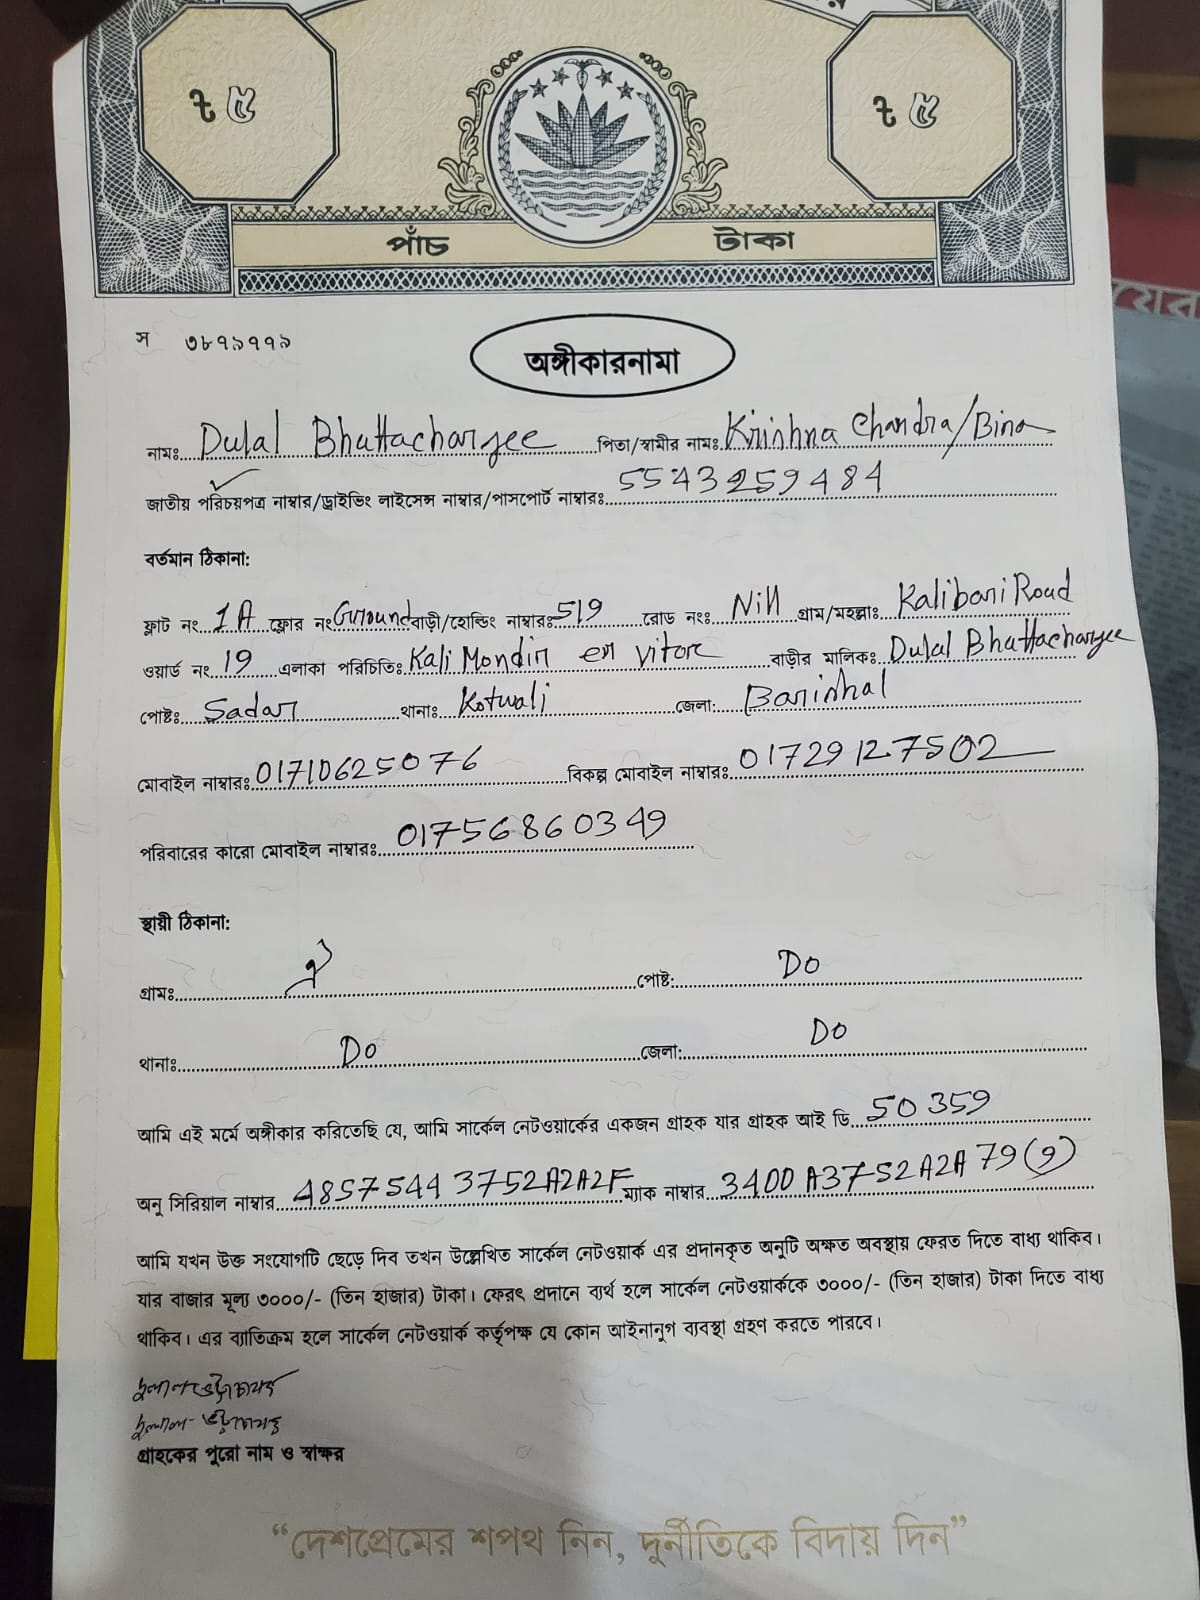 ৳ ৫ ৳ ৫
পাঁচ টাকা
স ৩৮৭১৭৭১
অঙ্গীকারনামা
নামঃ Dulal Bhattacharjee পিতা/স্বামীর নামঃ Krishna Chandra/Bina
জাতীয় পরিচয়পত্র নাম্বার/ড্রাইভিং লাইসেন্স নাম্বার/পাসপোর্ট নাম্বারঃ 5543259484
বর্তমান ঠিকানা:
ফ্লাট নং 1A ফ্লোর নং Ground বাড়ী/হোল্ডিং নাম্বারঃ 519 রোড নংঃ Nill গ্রাম/মহল্লাঃ Kalibari Road
ওয়ার্ড নং 19 এলাকা পরিচিতিঃ Kali Mondir er vitore বাড়ীর মালিকঃ Dulal Bhattacharjee
পোষ্টঃ Sadar থানাঃ Kotwali জেলা: Barishal
মোবাইল নাম্বারঃ 01710625076 বিকল্প মোবাইল নাম্বারঃ 01729127502
পরিবারের কারো মোবাইল নাম্বারঃ 01756860349
স্থায়ী ঠিকানা:
গ্রামঃ ঐ পোষ্ট: Do
থানাঃ Do জেলা: Do
আমি এই মর্মে অঙ্গীকার করিতেছি যে, আমি সার্কেল নেটওয়ার্কের একজন গ্রাহক যার গ্রাহক আই ডি 50359
অনু সিরিয়াল নাম্বার 48575443752A2A2F ম্যাক নাম্বার 3400A3752A2A79(9)
আমি যখন উক্ত সংযোগটি ছেড়ে দিব তখন উল্লেখিত সার্কেল নেটওয়ার্ক এর প্রদানকৃত অনুটি অক্ষত অবস্থায় ফেরত দিতে বাধ্য থাকিব।
যার বাজার মূল্য ৩০০০/- (তিন হাজার) টাকা। ফেরৎ প্রদানে ব্যর্থ হলে সার্কেল নেটওয়ার্ককে ৩০০০/- (তিন হাজার) টাকা দিতে বাধ্য
থাকিব। এর ব্যাতিক্রম হলে সার্কেল নেটওয়ার্ক কর্তৃপক্ষ যে কোন আইনানুগ ব্যবস্থা গ্রহণ করতে পারবে।
দুলাল ভট্টাচার্য
দুলাল ভট্টাচার্য
গ্রাহকের পুরো নাম ও স্বাক্ষর
“দেশপ্রেমের শপথ নিন, দুর্নীতিকে বিদায় দিন”